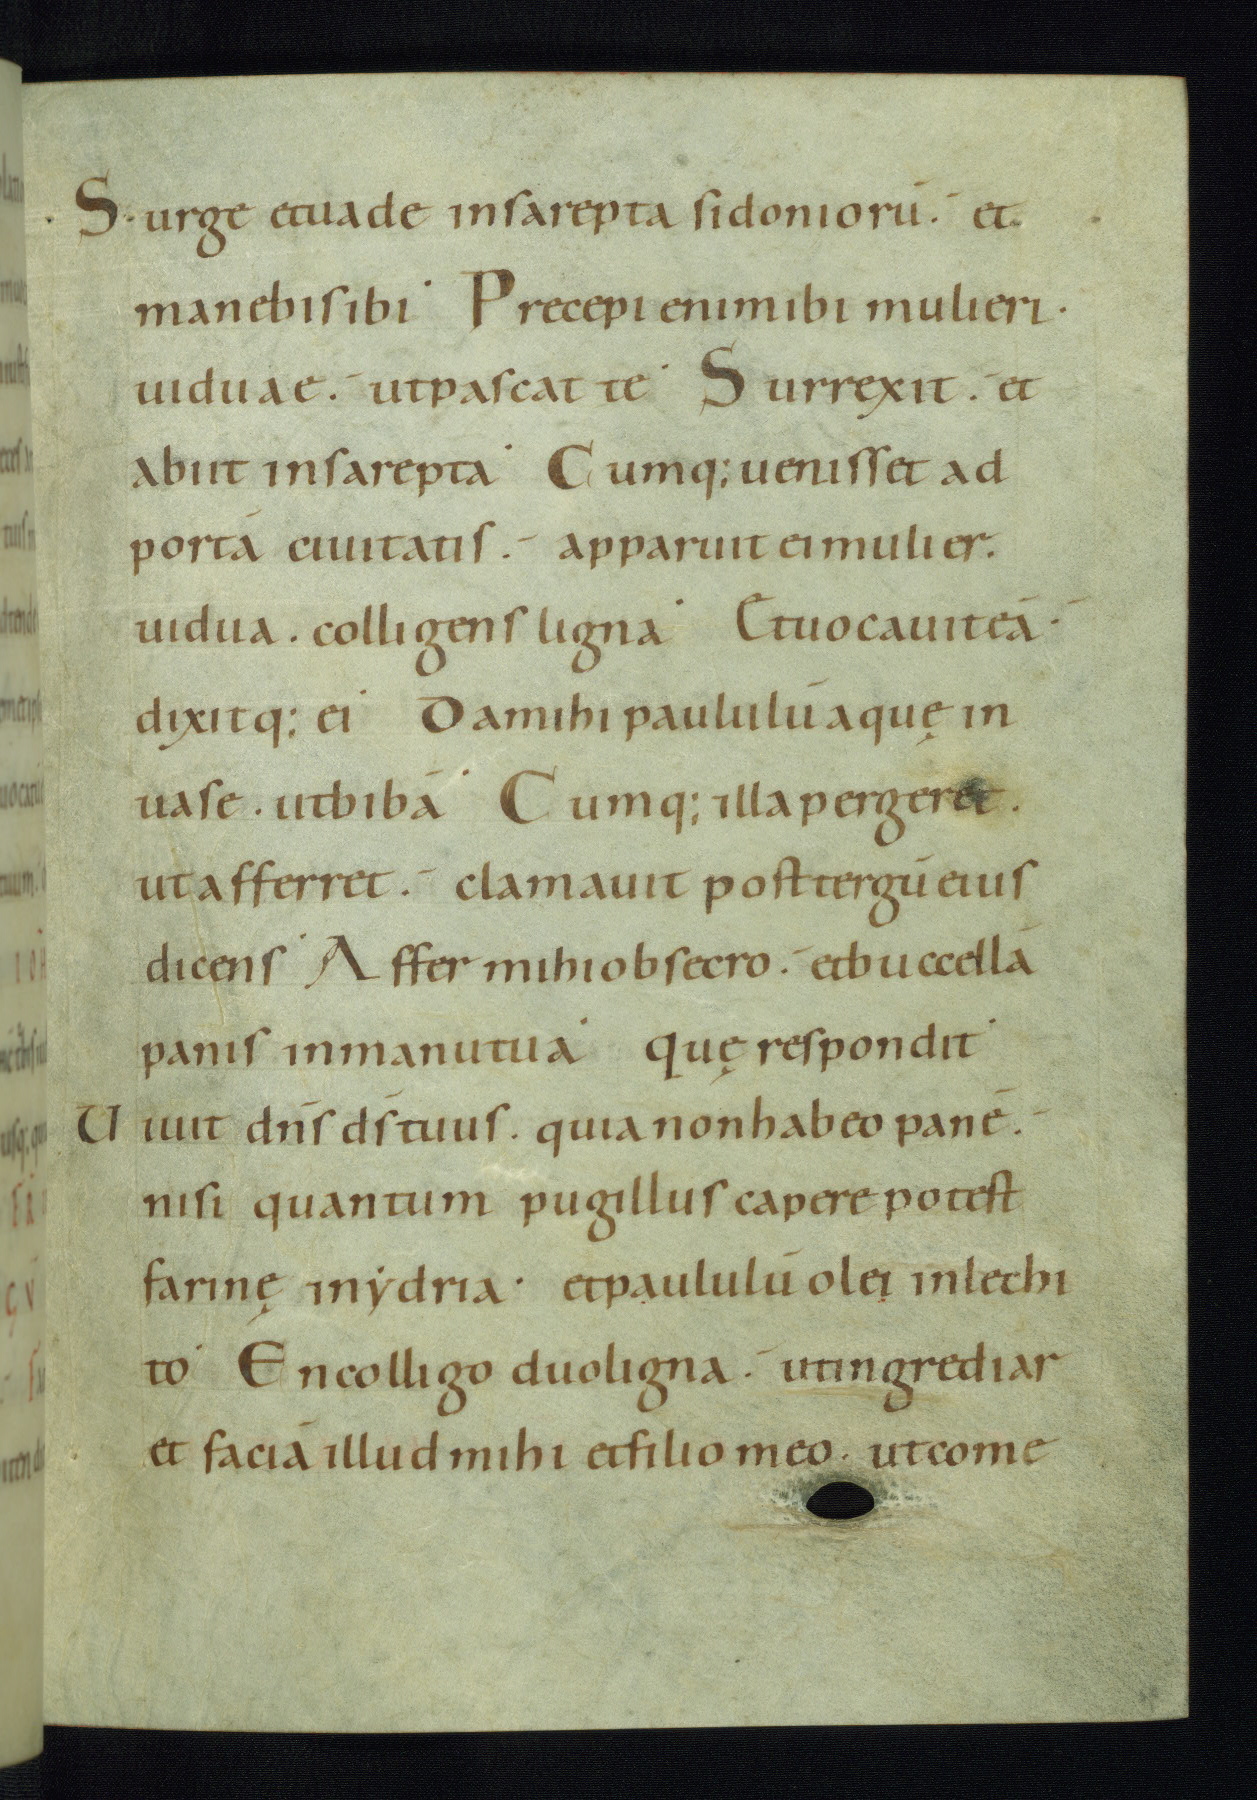 Surge etuade insarepta sidoniorū᷎. et
manebisibi Precepi enimibi mulieri.
uiduae. utpascat te Surrexit. et
abiit insarepta Cumq; uenisset ad
portā ciuitatis. apparuit eimulier.
uidua. colligens ligna Etuocauiteā.
dixitq; ei Damihi paululū aquę in
uase. utbibā Cumq; illapergeret.
utafferret. clamauit posttergū eius
dicens Affer mihiobsecro. etbuccellā
panis inmanutua Quę respondit
Uiuit dn̄s ds̄ tuus. quianonhabeo panē.
nisi quantum pugillus capere potest
farinę inẏdria. etpaululū olei inlechi
to Encolligo duoligna. utingrediar
et faciā illud mihi etfilio meo. utcome